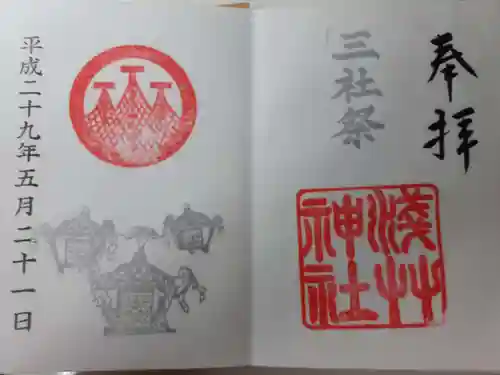 奉拝
三社祭
淺草
神社
平成二十九年五月二十一日